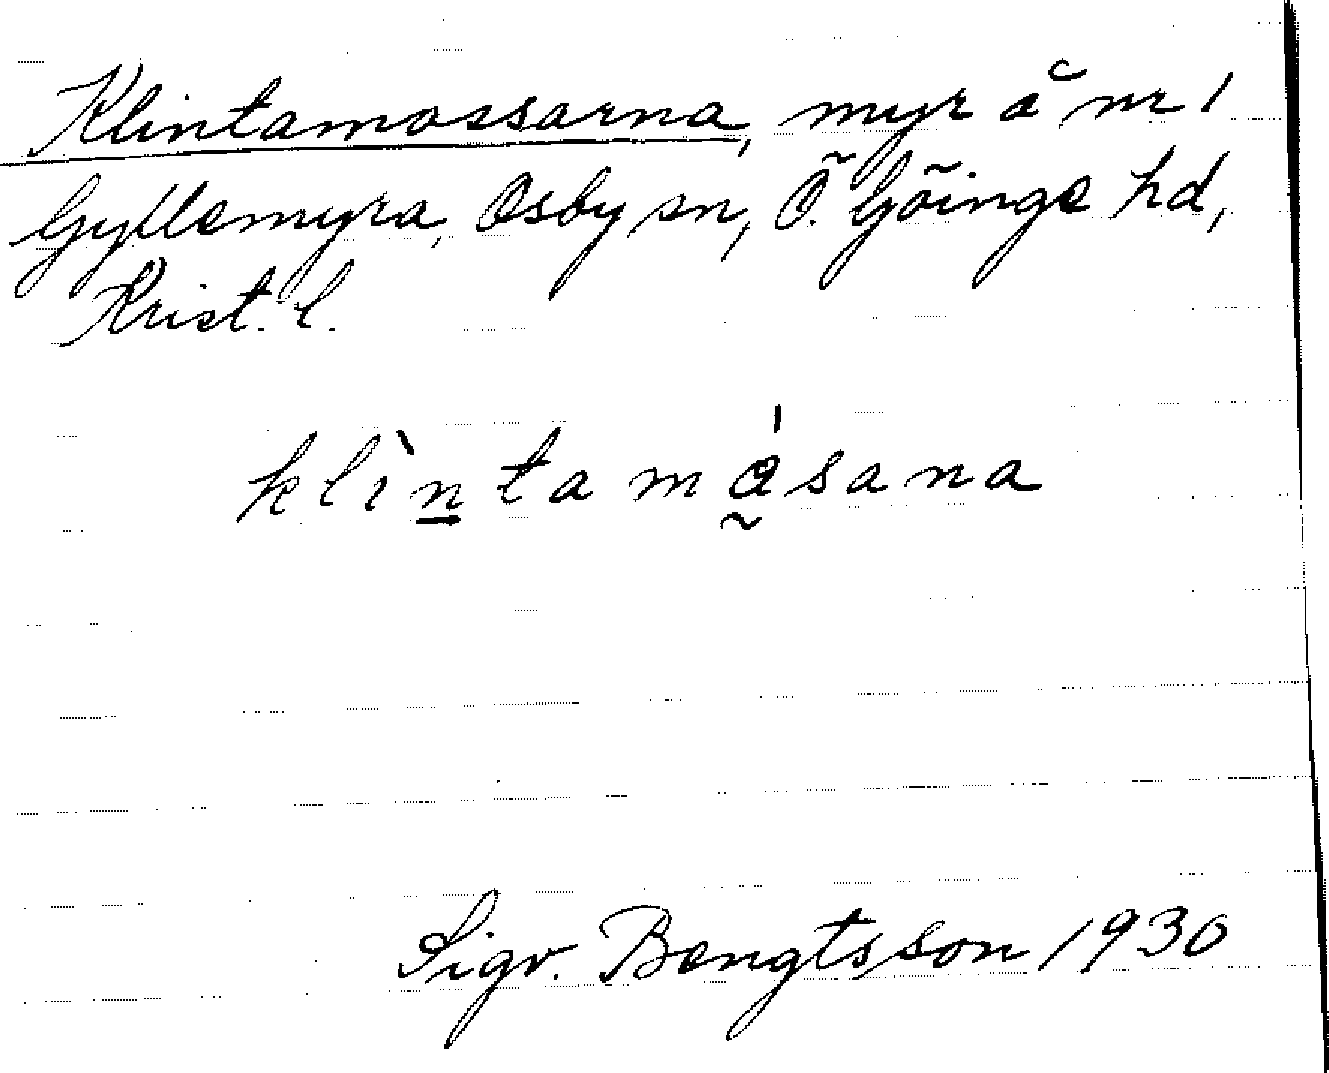 Klintamossarna, myr å nr 1
Gyllemyra, Osby sn, Ö. Göinge hd,
Krist. l.
klìntamåsana
Sigv. Bengtsson 1930